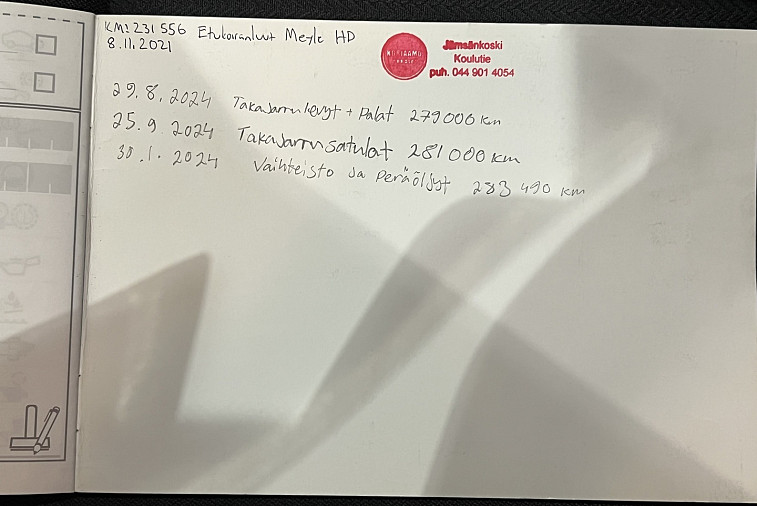 KM: 231 556 Etukoiranluut Meyle HD
8.11.2021
Jämsänkoski
Koulutie
puh. 044 901 4054
29.8.2024 Takajarrulevyt + Palat 279000 km
25.9 2024 Takajarrusatulat 281 000 km
30.1. 2024 Vaihteisto ja Peräöljyt 283 490 km